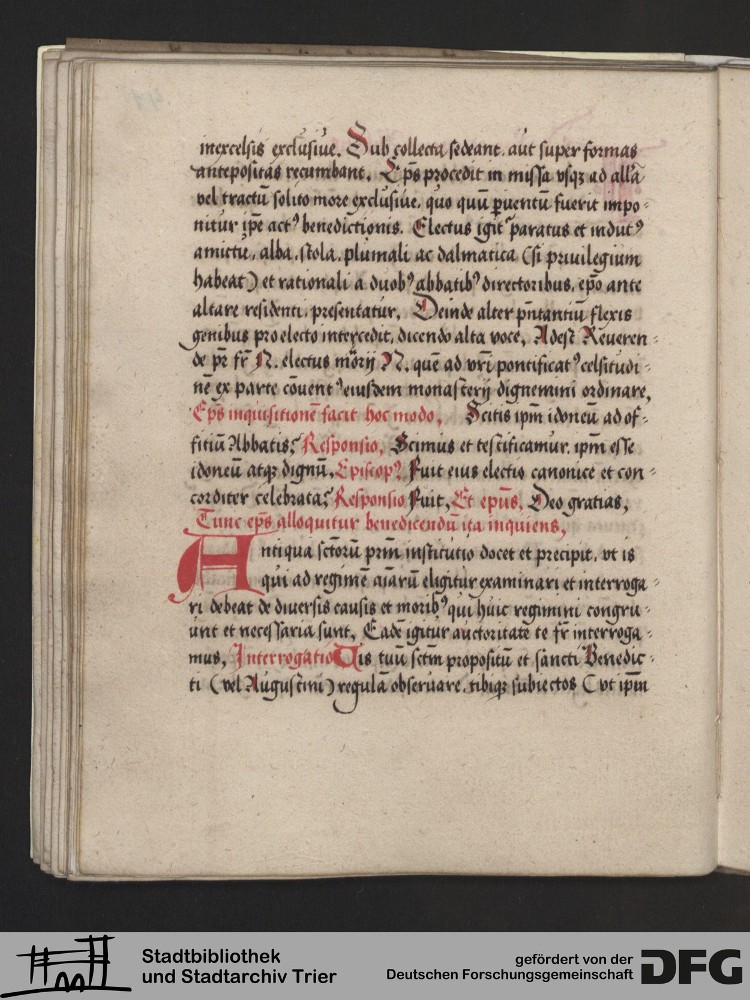 inexcelsis exclusiue. Sub collecta sedeant. aut super formas
antepositas recumbant. Ep̄s procedit in missa vsqꝫ ad all̄a
vel tractū solito more exclusiue. quo quū ꝑuentū fuerit impo⸗
nitur ip̄e actꝰ benedictionis. Electus igit᷑ paratus et indutꝰ
amictu, alba, stola, pluuiali ac dalmatica (si priuilegium
habeat) et rationali a duobꝰ abbatibꝰ directoribus, ep̄o ante
altare residenti, presentatur. Deinde alter pn̄tantiū flexis
genibus pro electo intercedit, dicendo alta voce, Adest Reueren⸗
de pr̄ fr̄ N. electus mōrij N. quē ad vr̄i pontificatꝰ celsitudi⸗
nē ex parte cōuentꝰ eiusdem monasterij dignemini ordinare,
Ep̄s inquisitionē facit hoc modo, Scitis ip̄m idoneū ad of⸗
fitiū Abbatis? Responsio, Scimus et testificamur, ip̄m esse
idoneū atqꝫ dignū, Episcopꝰ Fuit eius electio canonice et con⸗
corditer celebrata? Responsio Fuit, Et ep̄us, Deo gratias,
Tunc ep̄s alloquitur benedicendū ita inquiens,
Antiqua sctōrū prm̄ institutio docet et precipit, vt is
qui ad regimē aīarū eligitur examinari et interroga⸗
ri debeat de diuersis causis et moribꝰ qui huic regimini congru⸗
unt et necessaria sunt, Eadē igitur auctoritate te fr̄ interroga⸗
mus, Interrogatio Uis tuū sctm̄ propositū et sancti Benedic⸗
ti (vel Augustini) regulā obseruare, tibiqꝫ subiectos (vt ip̄m
Stadtbibliothek
und Stadtarchiv Trier
gefördert von der
Deutschen Forschungsgemeinschaft
DFG